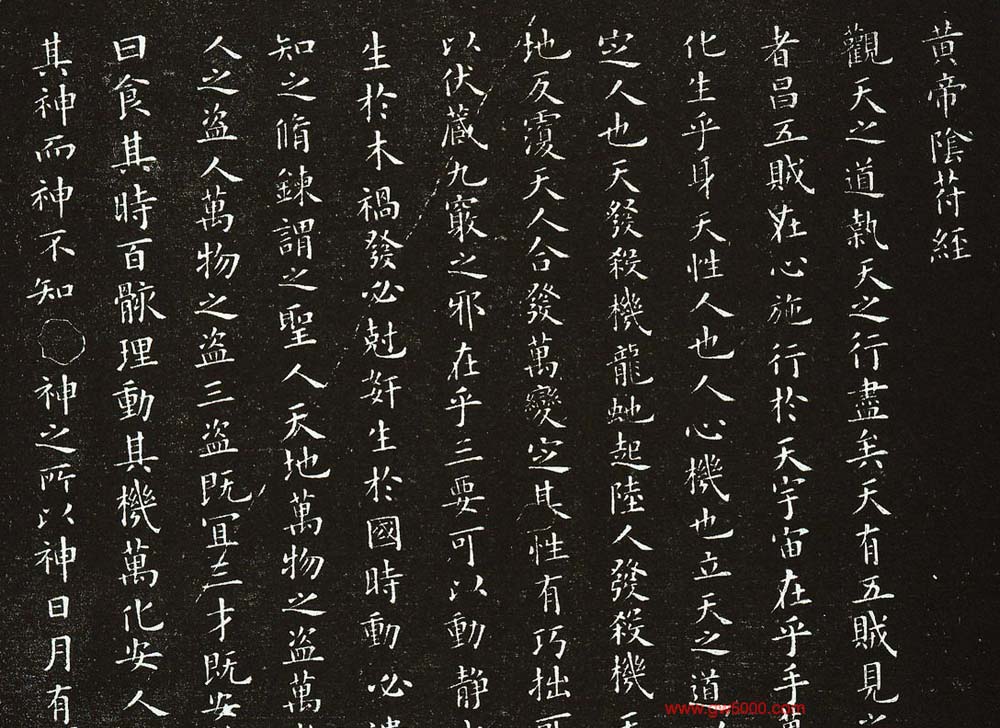 黃帝陰符經
觀天之道執天之行盡矣天有五賊見之
者昌五賊在心施行於天宇宙在乎手萬
化生乎身天性人也人心機也立天之道
定人也天發殺機龍虵起陸人發殺機天
地反覆天人合發萬變定其性有巧拙可
以伏藏九竅之邪在乎三要可以動靜
生於木禍發必尅奸生於國時動必潰
知之脩鍊謂之聖人天地萬物之盜萬
人之盜人萬物之盜三盜既冝三才既安
曰食其時百骸理動其機萬化安人
其神而神不知神之所以神日月有
www.gw6000.com